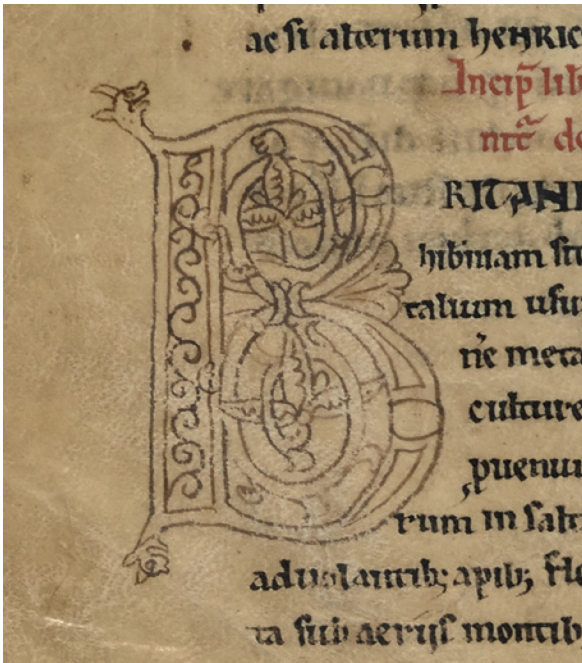 ac si alterum henric
Incip̅ lib
ntt̅ de
BRITANI
hibiuam sit
talium usu
n̅e meta
culture
puenui
rum in salt
aduolantib; apib; fle
ta sub aeriis montib